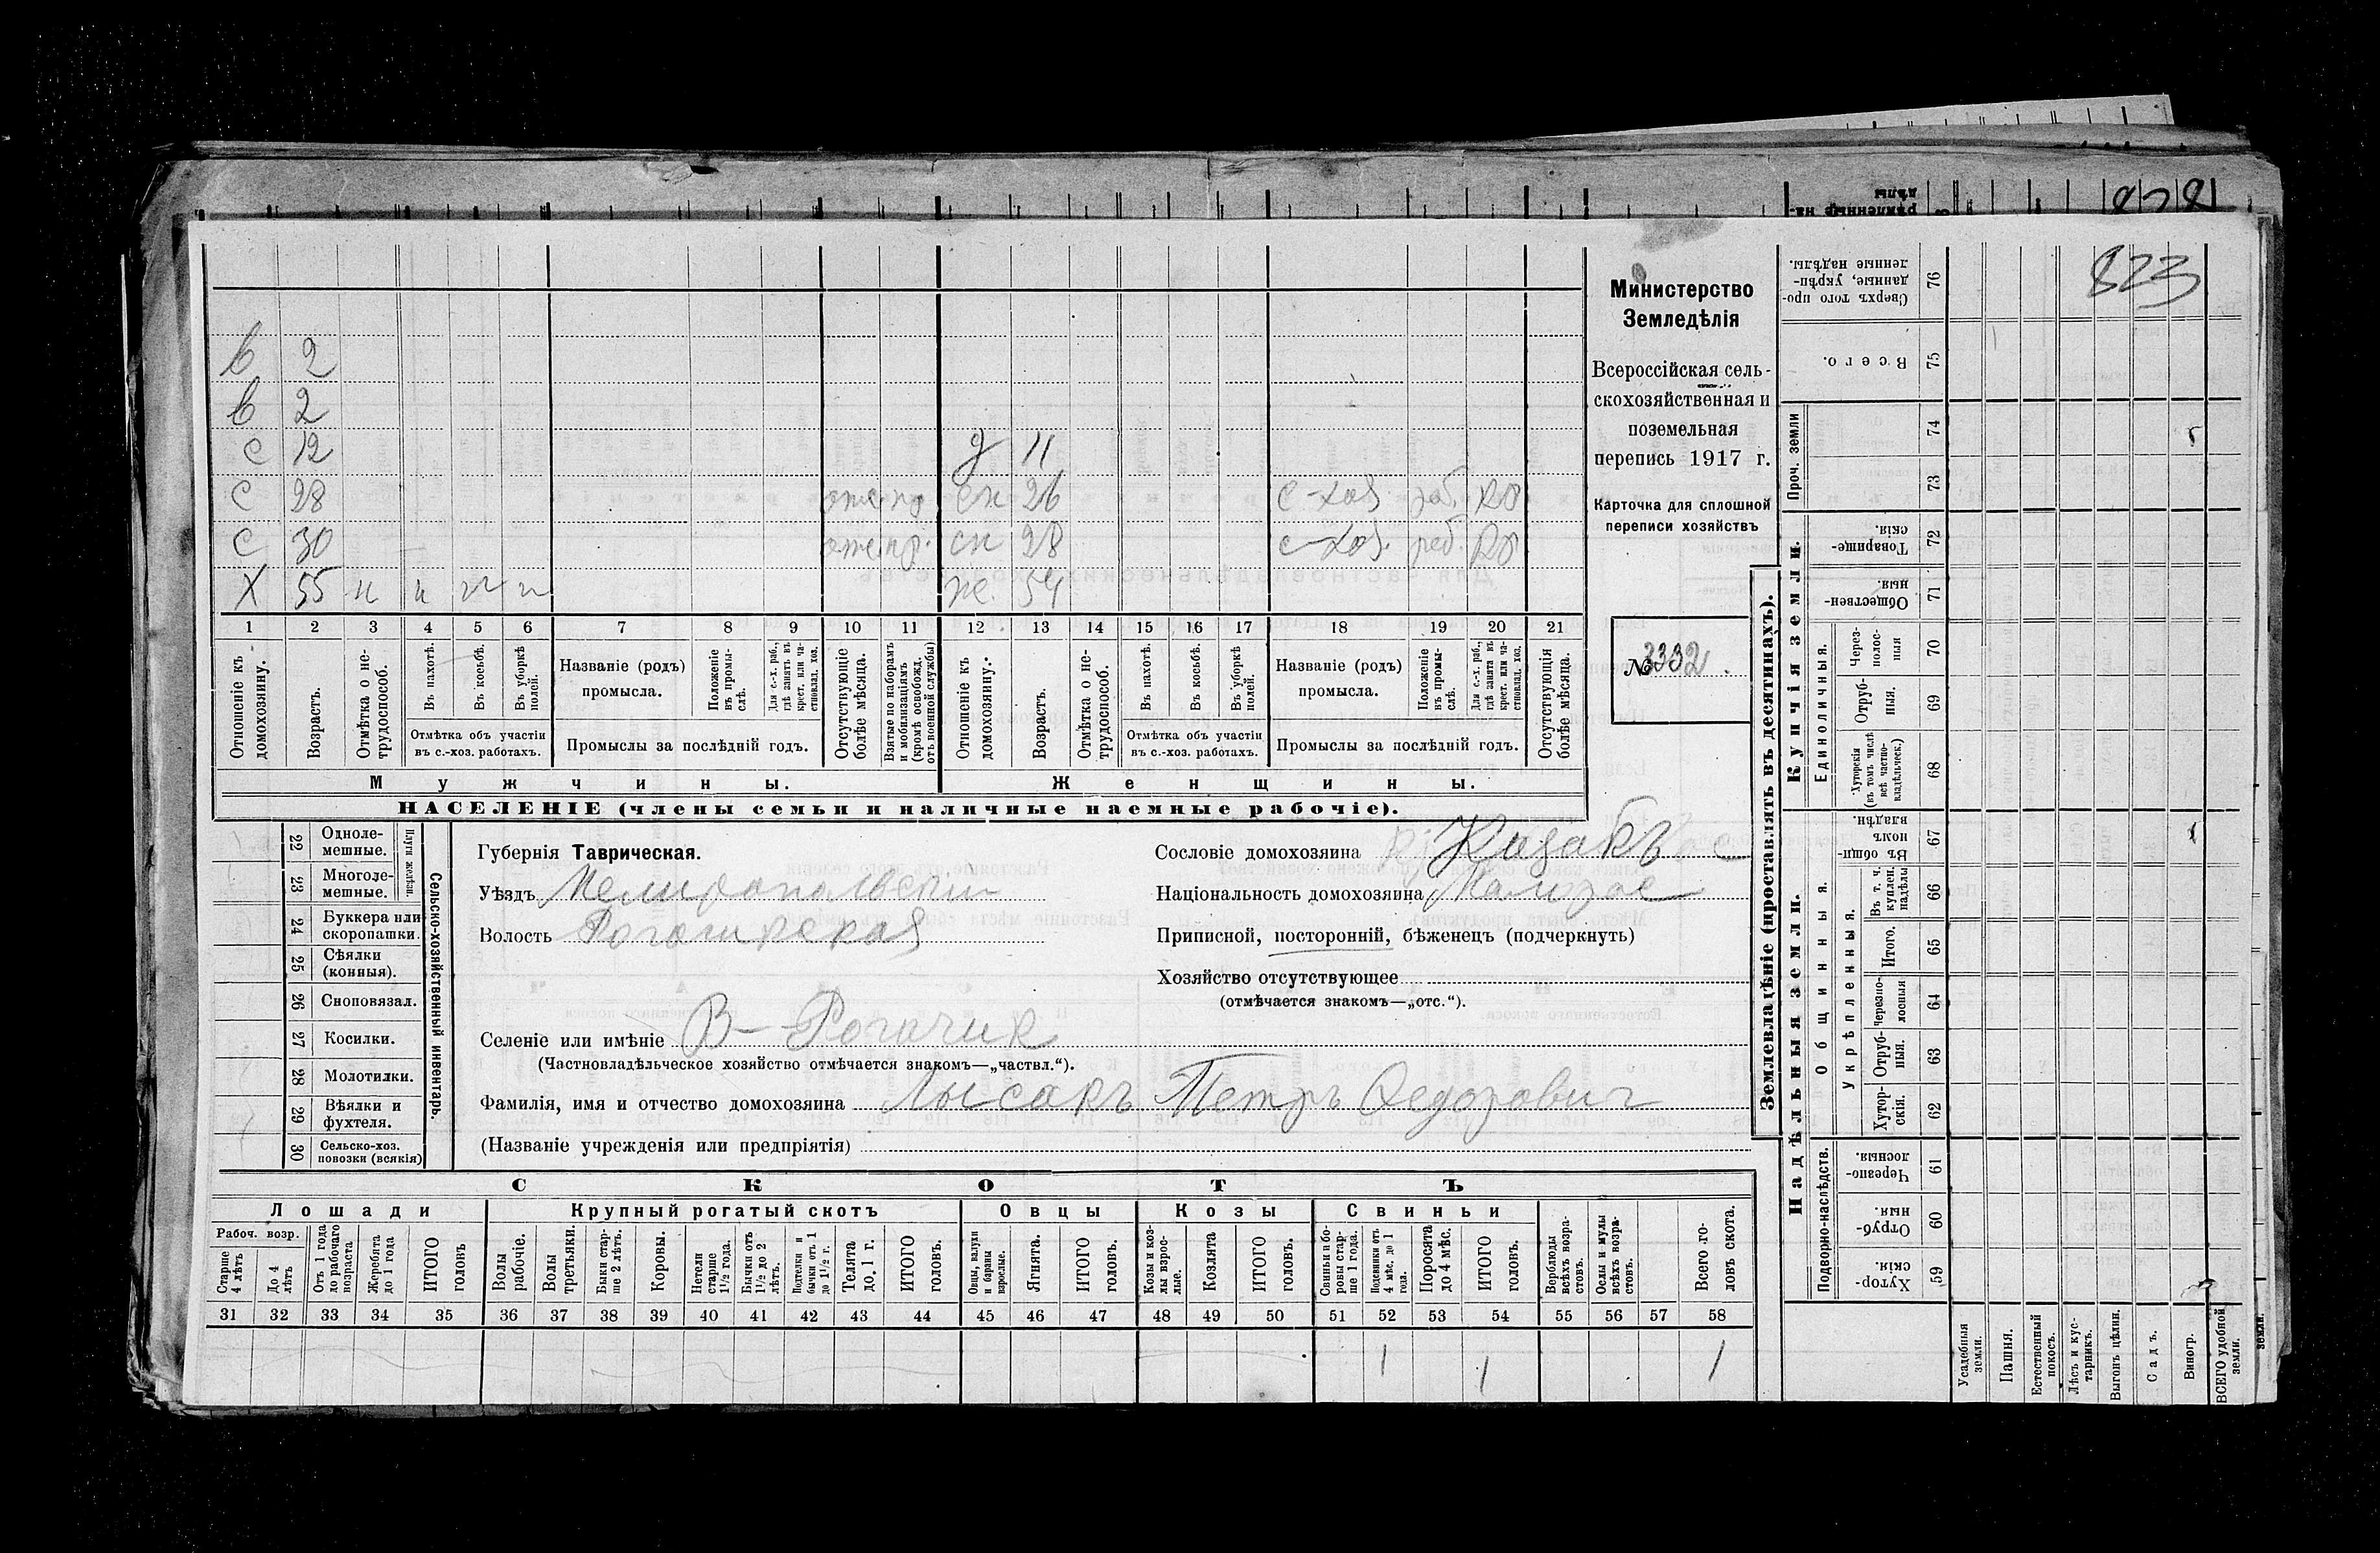 823
Министерство
Земледѣлія
Всероссійская сель-
скохозяйственная и
поземельная
перепись 1917 г.
Карточка для сплошной
переписи хозяйствъ
№ 3332.
в 2
в 2
с 12 д 11
с 28 сн 26 с-хоз раб.
с 30 сн 28 с-хоз. раб.
х 55 н н н н ж. 54
1 2 3 4 5 6 7 8 9 10 11 12 13 14 15 16 17 18 19 20 21
Отношеніе къ домохозяину.
Возрастъ.
Отмѣтка о не-трудоспособ.
Въ пахотѣ.
Въ косьбѣ.
Въ уборкѣ полей.
Отмѣтка объ участіи
въ с.-хоз. работахъ.
Названіе (родъ)
промысла.
Положеніе въ промы-слѣ.
Для с.-х. раб., гдѣ занятъ въ крест. или ча-стновлад. хоз.
Промыслы за послѣдній годъ.
Отсутствующіе болѣе мѣсяца.
Взятые по наборамъ и мобилизаціямъ (кромѣ освобожд. отъ военной службы)
Отношеніе къ домохозяину.
Возрастъ.
Отмѣтка о не-трудоспособ.
Въ пахотѣ.
Въ косьбѣ.
Въ уборкѣ полей.
Отмѣтка объ участіи
въ с.-хоз. работахъ.
Названіе (родъ)
промысла.
Положеніе въ промы-слѣ.
Для с.-х. раб., гдѣ занята въ крест. или ча-стновлад. хоз.
Промыслы за послѣдній годъ.
Отсутствующія болѣе мѣсяца.
Мужчины. Женщины.
НАСЕЛЕНІЕ (члены семьи и наличные наемные рабочіе).
Сельско-хозяйственный инвентарь.
22 Одноле-мешные.
23 Многоле-мешные.
24 Буккера или скоропашки.
25 Сѣялки (конныя).
26 Сноповязал.
27 Косилки.
28 Молотилки.
29 Вѣялки и фухтеля.
30 Сельско-хоз. повозки (всякія)
Губернія Таврическая.
Уѣздъ Мелитопольскій
Волость Рогачикская
Селеніе или имѣніе В-Рогачик
(Частновладѣльческое хозяйство отмѣчается знакомъ—„частвл.“).
Фамилія, имя и отчество домохозяина Лысакъ Петръ Федорович
(Названіе учрежденія или предпріятія)
Сословіе домохозяина Казакъ
Національность домохозяина Малорос
Приписной, посторонній, бѣженецъ (подчеркнуть)
Хозяйство отсутствующее
(отмѣчается знакомъ—„отс.“).
СКОТЪ
Лошади Крупный рогатый скотъ Овцы Козы Свиньи
Рабоч. возр.
Старше 4 лѣтъ
До 4 лѣтъ
Отъ 1 года до рабочаго возраста
Жеребята до 1 года
ИТОГО головъ
Волы рабочіе.
Волы третьяки.
Быки стар-ше 2 лѣтъ.
Коровы.
Нетели старше 1½ года.
Бычки отъ 1½ до 2 лѣтъ.
Подтелки и бычки отъ 1 до 1½ г.
Телята до 1 г.
ИТОГО головъ.
Овцы, валухи и бараны взрослые.
Ягнята.
ИТОГО головъ.
Козы и коз-лы взрос-лые.
Козлята
ИТОГО головъ.
Свиньи и бо-ровы стар-ше 1 года.
Подсвинки отъ 4 мѣс. до 1 года.
Поросята до 4 мѣс.
ИТОГО головъ.
Верблюды всѣхъ возра-стовъ.
Ослы и мулы всѣхъ возра-стовъ.
Всего го-ловъ скота.
31 32 33 34 35 36 37 38 39 40 41 42 43 44 45 46 47 48 49 50 51 52 53 54 55 56 57 58
1 1 1
Землевладѣніе (проставлять въ десятинахъ).
Надѣльныя земли. Купчія земли. Проч. земли
Подворно-наслѣдств. Общинныя. Единоличныя.
Укрѣпленныя.
Сверхъ того про-данные, укрѣп-ленные надѣлы. 76
Всего. 75
74
73
Товарище-скія. 72
Обществен-ныя. 71
Через-полос-ныя 70
Отруб-ныя. 69
Хуторскія (въ томъ числѣ всѣ частно-владѣльческ.) 68
Въ общи-номъ владѣн. 67
Въ т. ч. куплен. надѣлы 66
Итого. 65
Черезпо-лосныя 64
Отруб-ныя. 63
Хутор-скія. 62
Черезпо-лосныя. 61
Отруб-ныя. 60
Хутор-скія. 59
Усадебныя земли.
Пашня.
Естественный покосъ.
Лѣсъ и кус-тарникъ.
Выгонъ цѣлин.
Садъ.
Виногр.
ВСЕГО удобной земли.